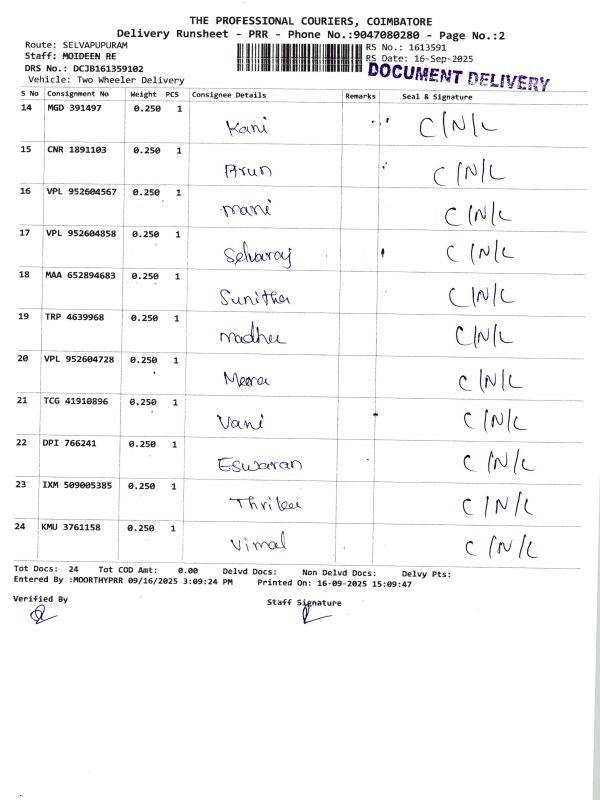 THE PROFESSIONAL COURIERS, COIMBATORE
Delivery Runsheet - PRR - Phone No.:9047080280 - Page No.:2
Route: SELVAPUPURAM
RS No.: 1613591
Staff: MOIDEEN RE
RS Date: 16-Sep-2025
DRS No.: DCJB161359102
DOCUMENT DELIVERY
Vehicle: Two Wheeler Delivery
S No Consignment No Weight PCS Consignee Details Remarks Seal & Signature
14 MGD 391497 0.250 1 Kani C/N/L
15 CNR 1891103 0.250 1 Arun C/N/L
16 VPL 952604567 0.250 1 mani C/N/L
17 VPL 952604858 0.250 1 Selvaraj C/N/L
18 MAA 652894683 0.250 1 Sunitha C/N/L
19 TRP 4639968 0.250 1 madhu C/N/L
20 VPL 952604728 0.250 1 Meena C/N/L
21 TCG 41910896 0.250 1 Vani C/N/L
22 DPI 766241 0.250 1 Eswaran C/N/L
23 IXM 509005385 0.250 1 C/N/L
24 KMU 3761158 0.250 1 Vimal C/N/L
Tot Docs: 24 Tot COD Amt: 0.00 Delvd Docs: Non Delvd Docs: Delvy Pts:
Entered By :MOORTHYPRR 09/16/2025 3:09:24 PM Printed On: 16-09-2025 15:09:47
Verified By Staff Signature